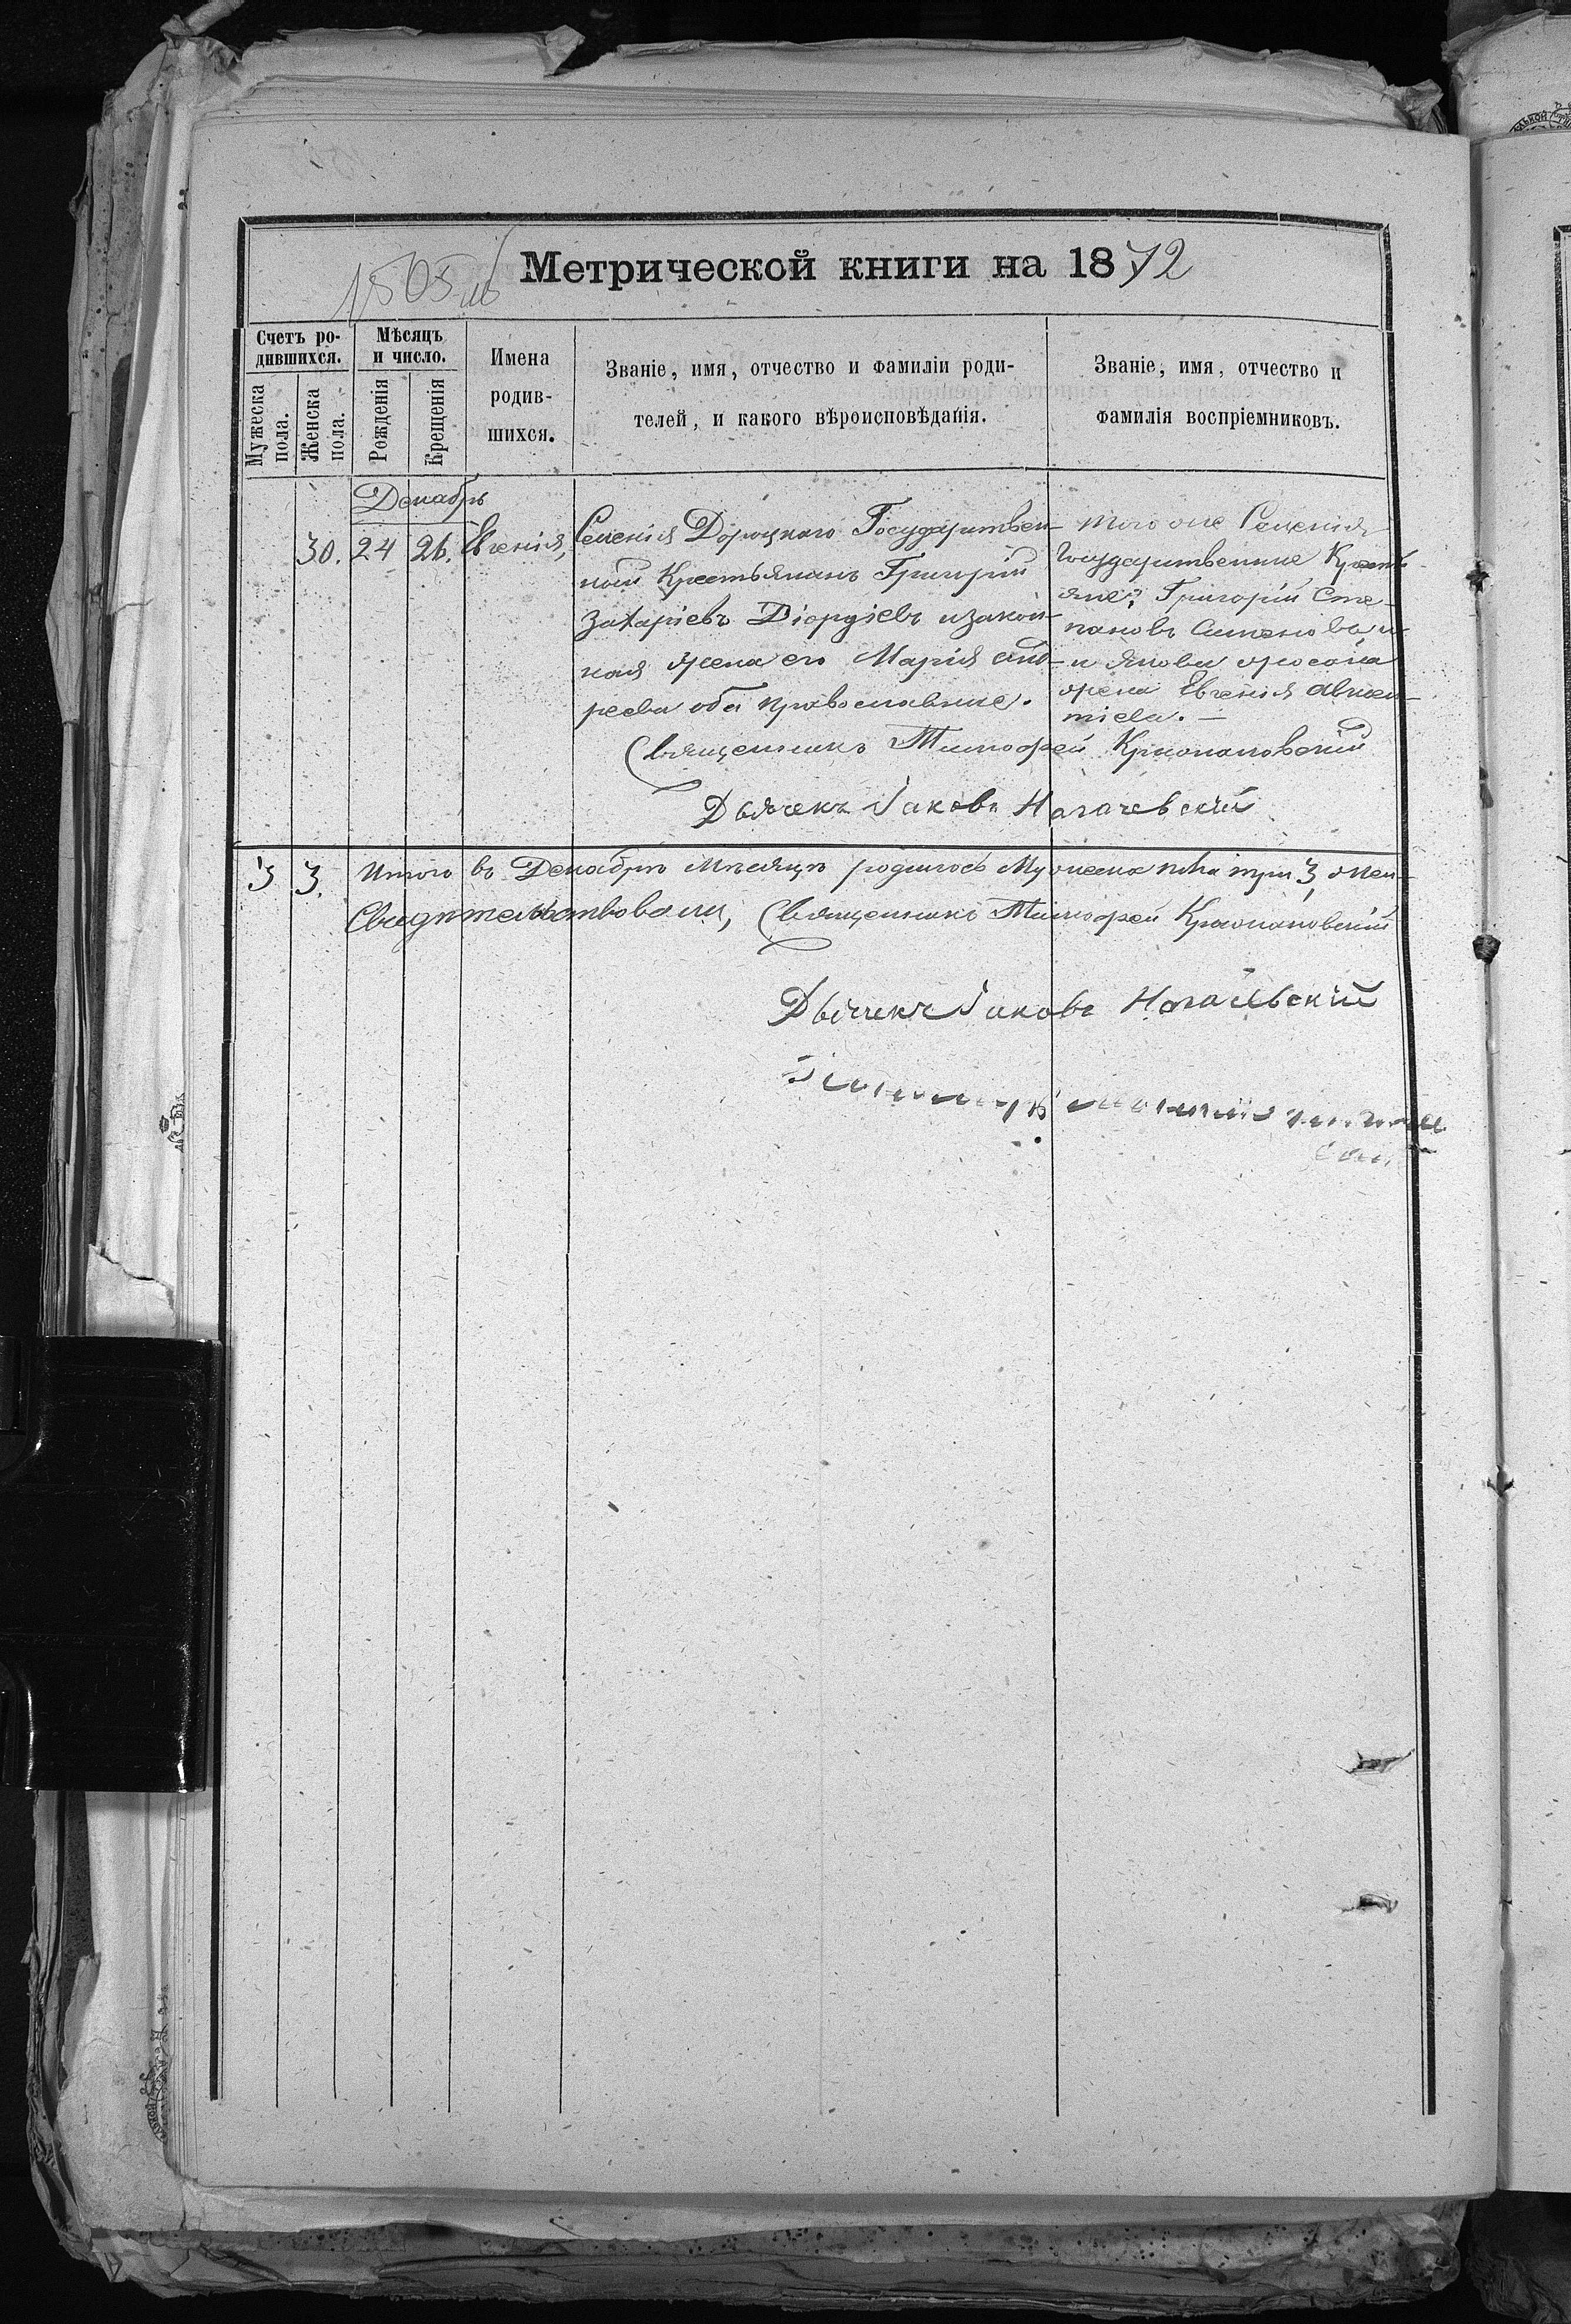 Метрической книги на 1872
1505 об
Счетъ ро-
дившихся.
Мужеска
пола.
Женска
пола.
Мѣсяцъ
и число.
Рожденія
Крещенія
Имена
родив-
шихся.
Званіе, имя, отчество и фамиліи роди-
телей, и какого вѣроисповѣданія.
Званіе, имя, отчество и
фамилія воспріемниковъ.
Декабрь
30. 24 26. Евгенія,
Селенія Дороцкаго Государствен-
ный Крестьянинъ Григорій
Захаріевъ Діордіевъ и закон-
ная жена его Марія Анд-
реева оба православные.
того же Селенія
Государственные Кресть-
яне; Григорій Сте-
пановъ
и жена
жена Евгенія Авксен-
тіева. —
Священникъ Тимофей
Дьячекъ Іаковъ Нагачевскій
3 3. Итого въ Декабрѣ Мѣсяцѣ родилось Мужеска пола три 3, жен-
Свидѣтельствовали, Священникъ Тимофей
Дьячекъ Іаковъ Нагачевскій